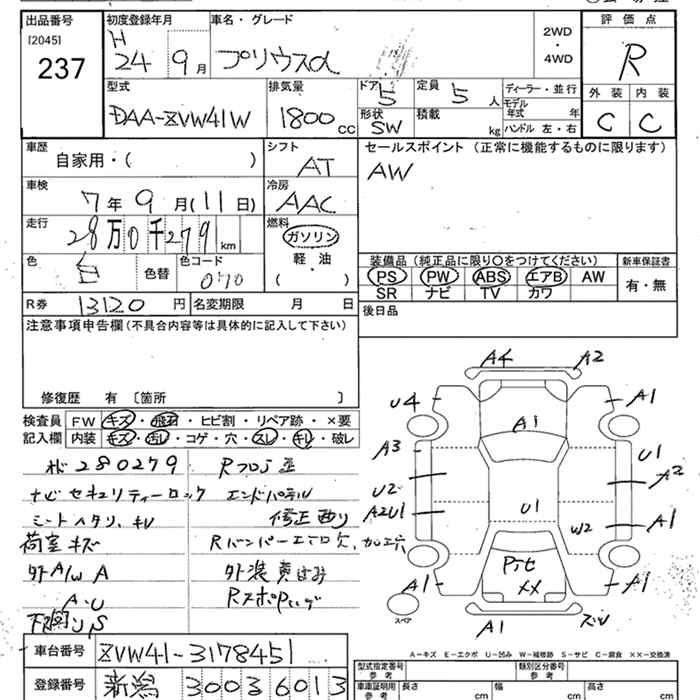 出品番号 初度登録年月 車名・グレード 評価点
[2045] H
237 24 9月 プリウスα 2WD・4WD R
外装 内装
C C
型式 排気量 ドア 定員 ディーラー・並行
DAA-ZVW41W 1800cc 5 5人 モデル年式 年
形状 積載
SW kg ハンドル 左・右
車歴 シフト セールスポイント (正常に機能するものに限ります)
自家用・( ) AT AW
車検 冷房
7年9月(11日) AAC
走行 燃料
28万0千279km ガソリン
軽油
・
( )
色 色コード
白 色替 070
装備品 (純正品に限り○をつけてください) 新車保証書
PS PW ABS エアB AW 有・無
SR ナビ TV カワ
R券 13120円 名変期限 月 日 後日品
注意事項申告欄 (不具合内容等は具体的に記入して下さい)
修復歴 有 〔箇所 〕
検査員 FW キズ・飛石・ヒビ割・リペア跡・×要
記入欄 内装 キズ・汚レ・コゲ・穴・スレ・キレ・破レ
280279
ナビセキュリティーロック エンドパネル
シートヘタリ、キレ 修正有り
荷室キズ Rバンパー 欠、加工穴
外A/W A
A・U
下廻りS
A4 A2
U4 A1
A1
A3 U1
U2 A2
A2U1 U1 W2 A1
XX
A1 A1
A1
スペア
A-キズ E-エクボ U-凹み W-補修跡 S-サビ C-腐食 XX-交換済
車台番号 ZVW41-3178451
登録番号 新潟 300 3 6013
型式指定番号 参考 類別区分番号 参考
車庫証明用 参考 長さ cm 幅 cm 高さ cm